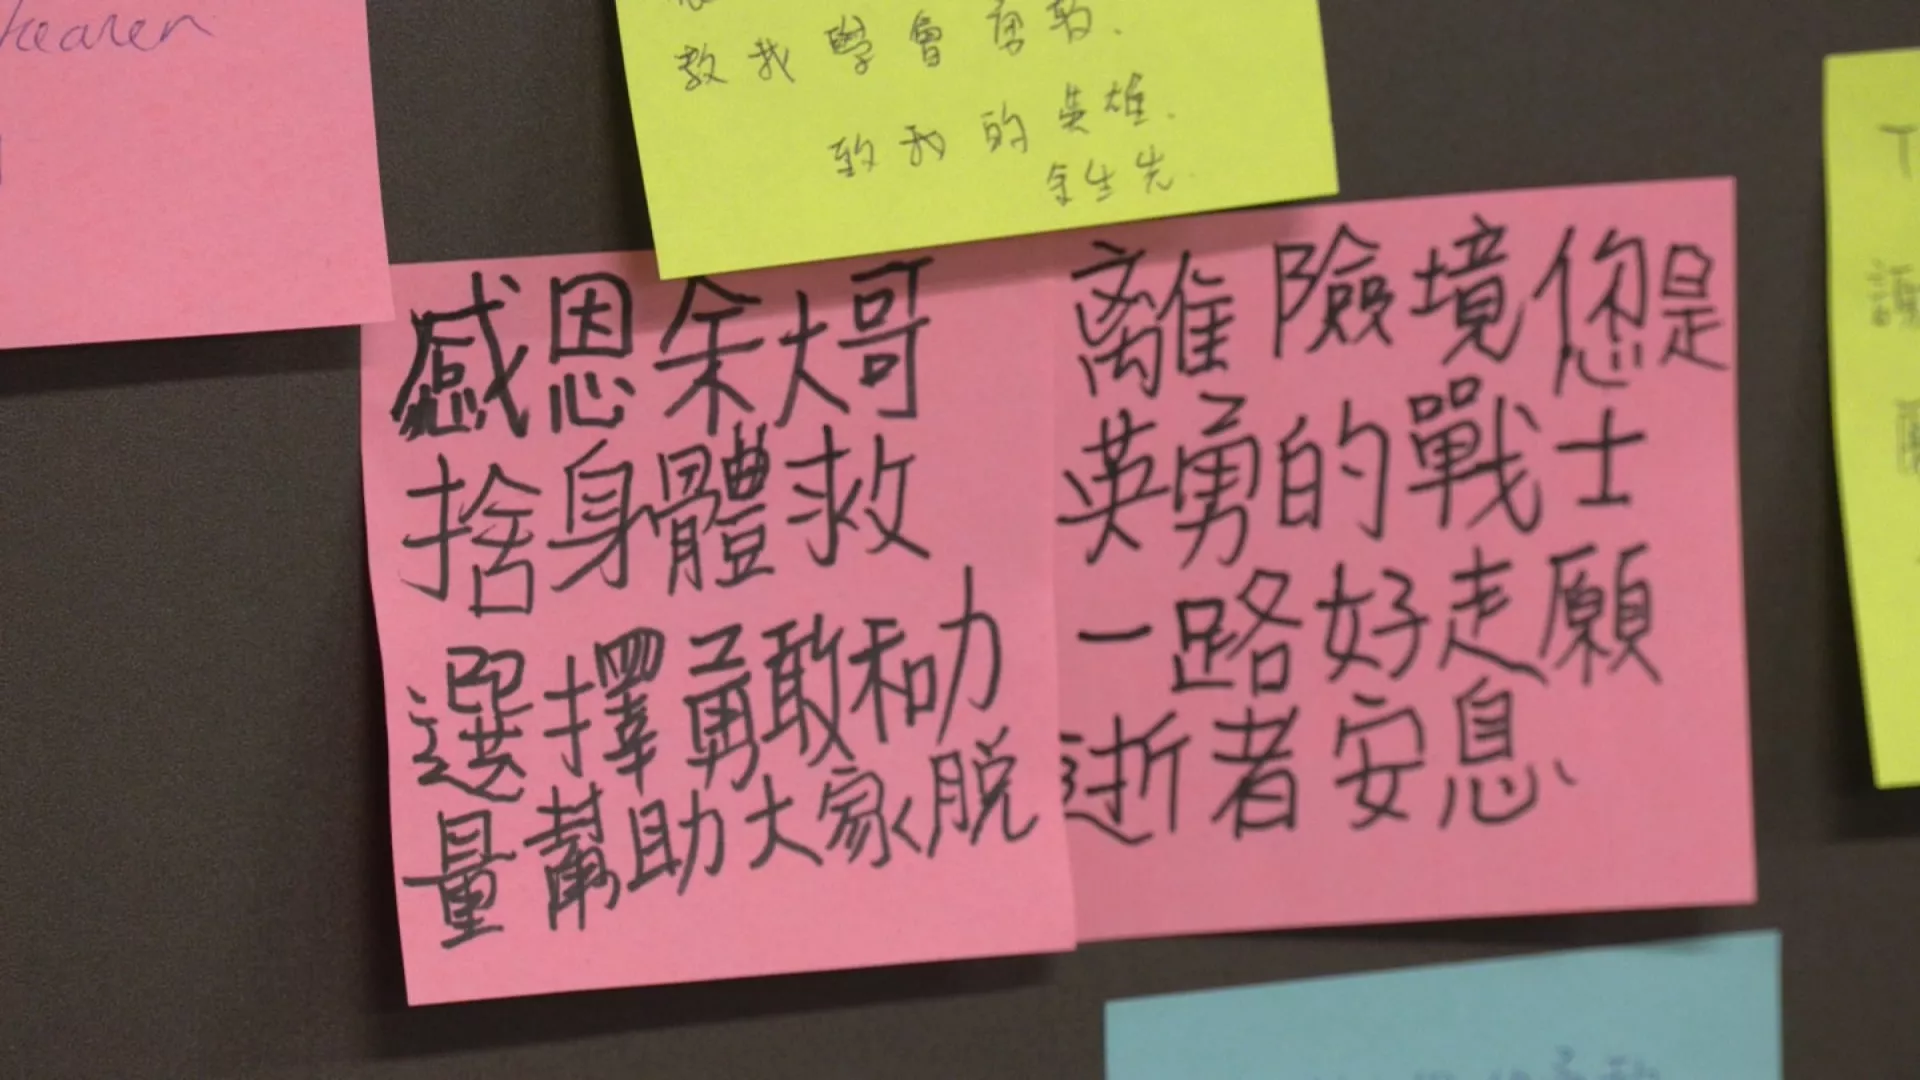 heaven
教我學會勇敢.
致我的英雄.
余先生
感恩余大哥
捨身體救
選擇勇敢和力
量幫助大家脱
離險境您是
英勇的戰士
一路好走願
逝者安息、
T